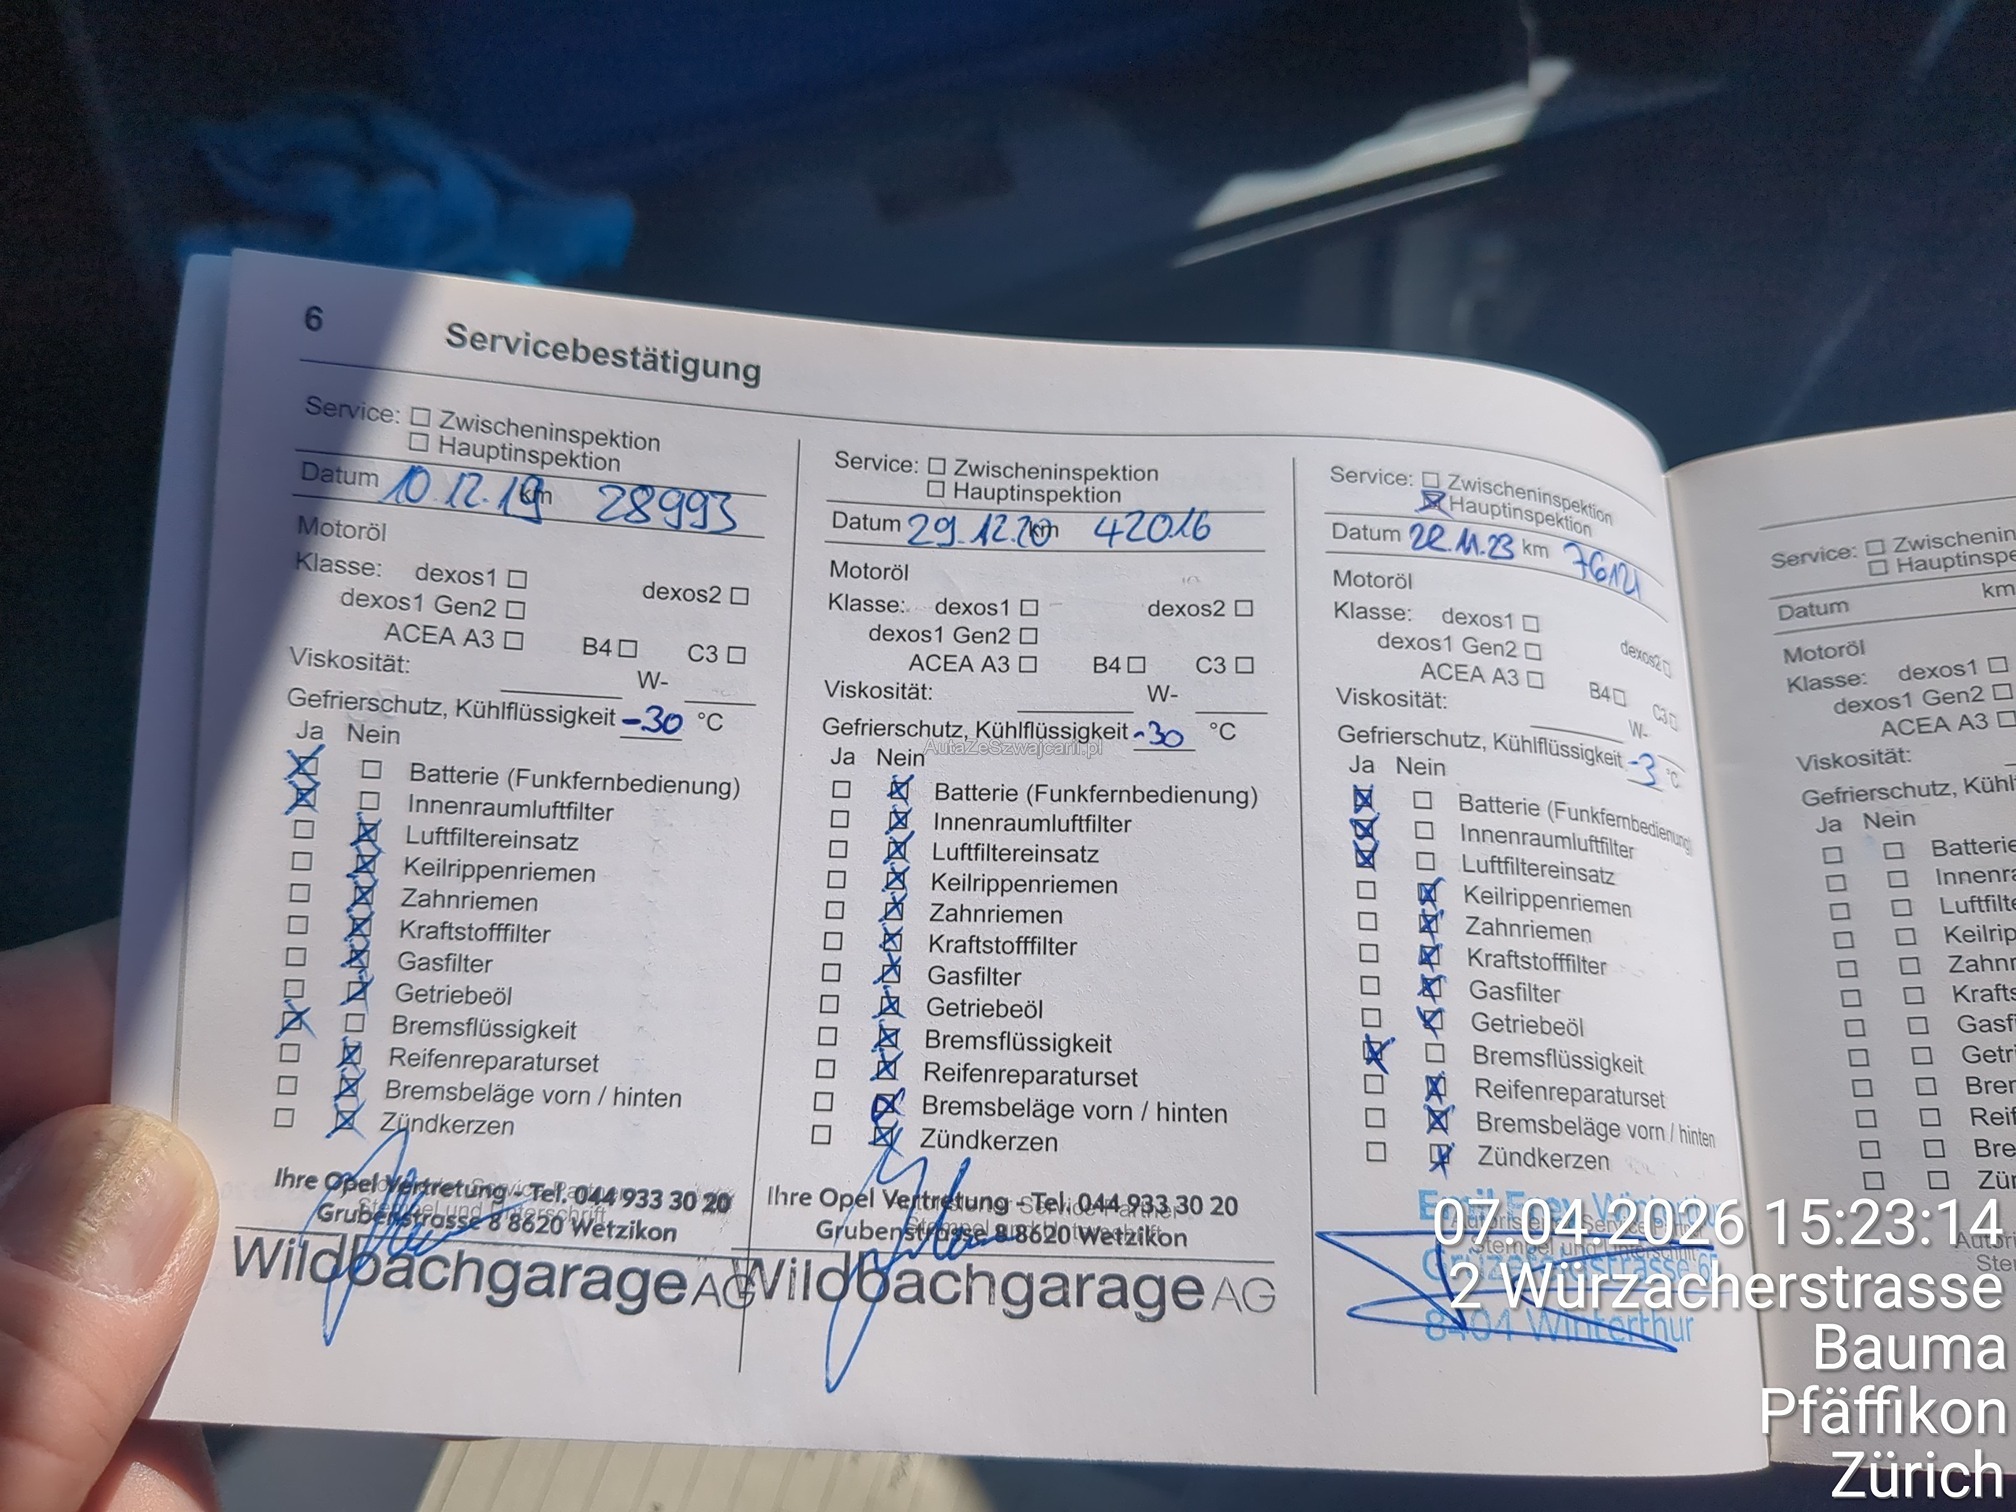 6
Servicebestätigung
Service: Zwischeninspektion
Hauptinspektion
Datum 10.12.19 km 28993
Motoröl
Klasse: dexos1 dexos2
dexos1 Gen2
ACEA A3 B4 C3
Viskosität: W-
Gefrierschutz, Kühlflüssigkeit -30 °C
Ja Nein
Batterie (Funkfernbedienung)
Innenraumluftfilter
Luftfiltereinsatz
Keilrippenriemen
Zahnriemen
Kraftstofffilter
Gasfilter
Getriebeöl
Bremsflüssigkeit
Reifenreparaturset
Bremsbeläge vorn / hinten
Zündkerzen
Ihre Opel Vertretung - Tel. 044 933 30 20
Stempel und Unterschrift
Grubenstrasse 8 8620 Wetzikon
Wildbachgarage AG
Service: Zwischeninspektion
Hauptinspektion
Datum 29.12.20 km 42016
Motoröl
Klasse: dexos1 dexos2
dexos1 Gen2
ACEA A3 B4 C3
Viskosität: W-
Gefrierschutz, Kühlflüssigkeit -30 °C
AutaZeSzwajcarii.pl
Ja Nein
Batterie (Funkfernbedienung)
Innenraumluftfilter
Luftfiltereinsatz
Keilrippenriemen
Zahnriemen
Kraftstofffilter
Gasfilter
Getriebeöl
Bremsflüssigkeit
Reifenreparaturset
Bremsbeläge vorn / hinten
Zündkerzen
Ihre Opel Vertretung - Tel. 044 933 30 20
Grubenstrasse 8 8620 Wetzikon
Wildbachgarage AG
Service: Zwischeninspektion
Hauptinspektion
Datum 22.11.23 km
Motoröl
Klasse: dexos1 dexos2
dexos1 Gen2
ACEA A3 B4 C3
Viskosität: W-
Gefrierschutz, Kühlflüssigkeit -3 °C
Ja Nein
Batterie (Funkfernbedienung)
Innenraumluftfilter
Luftfiltereinsatz
Keilrippenriemen
Zahnriemen
Kraftstofffilter
Gasfilter
Getriebeöl
Bremsflüssigkeit
Reifenreparaturset
Bremsbeläge vorn / hinten
Zündkerzen
Stempel und Unterschrift
8404 Winterthur
Service: Zwischenin
Hauptinspe
Datum km
Motoröl
Klasse: dexos1
dexos1 Gen2
ACEA A3
Viskosität:
Gefrierschutz, Kühl
Ja Nein
Batterie
Innenra
Luftfilte
Keilrip
Zahnr
Krafts
Gasf
Getri
Brer
Reif
Bre
Zür
Autori
Ste
07.04.2026 15:23:14
2 Würzacherstrasse
Bauma
Pfäffikon
Zürich